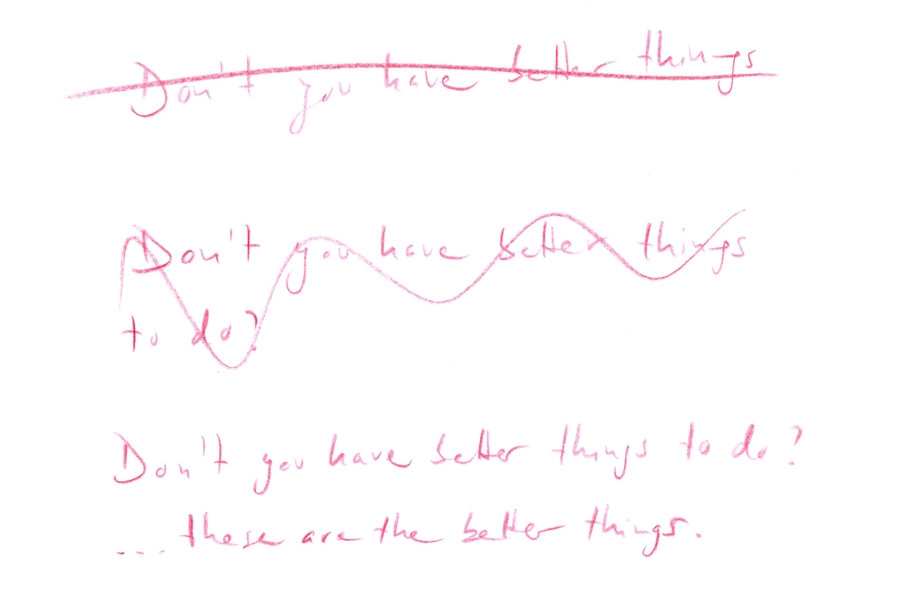 Don't you have better things
Don't you have better things
to do?
Don't you have better things to do?
... these are the better things.